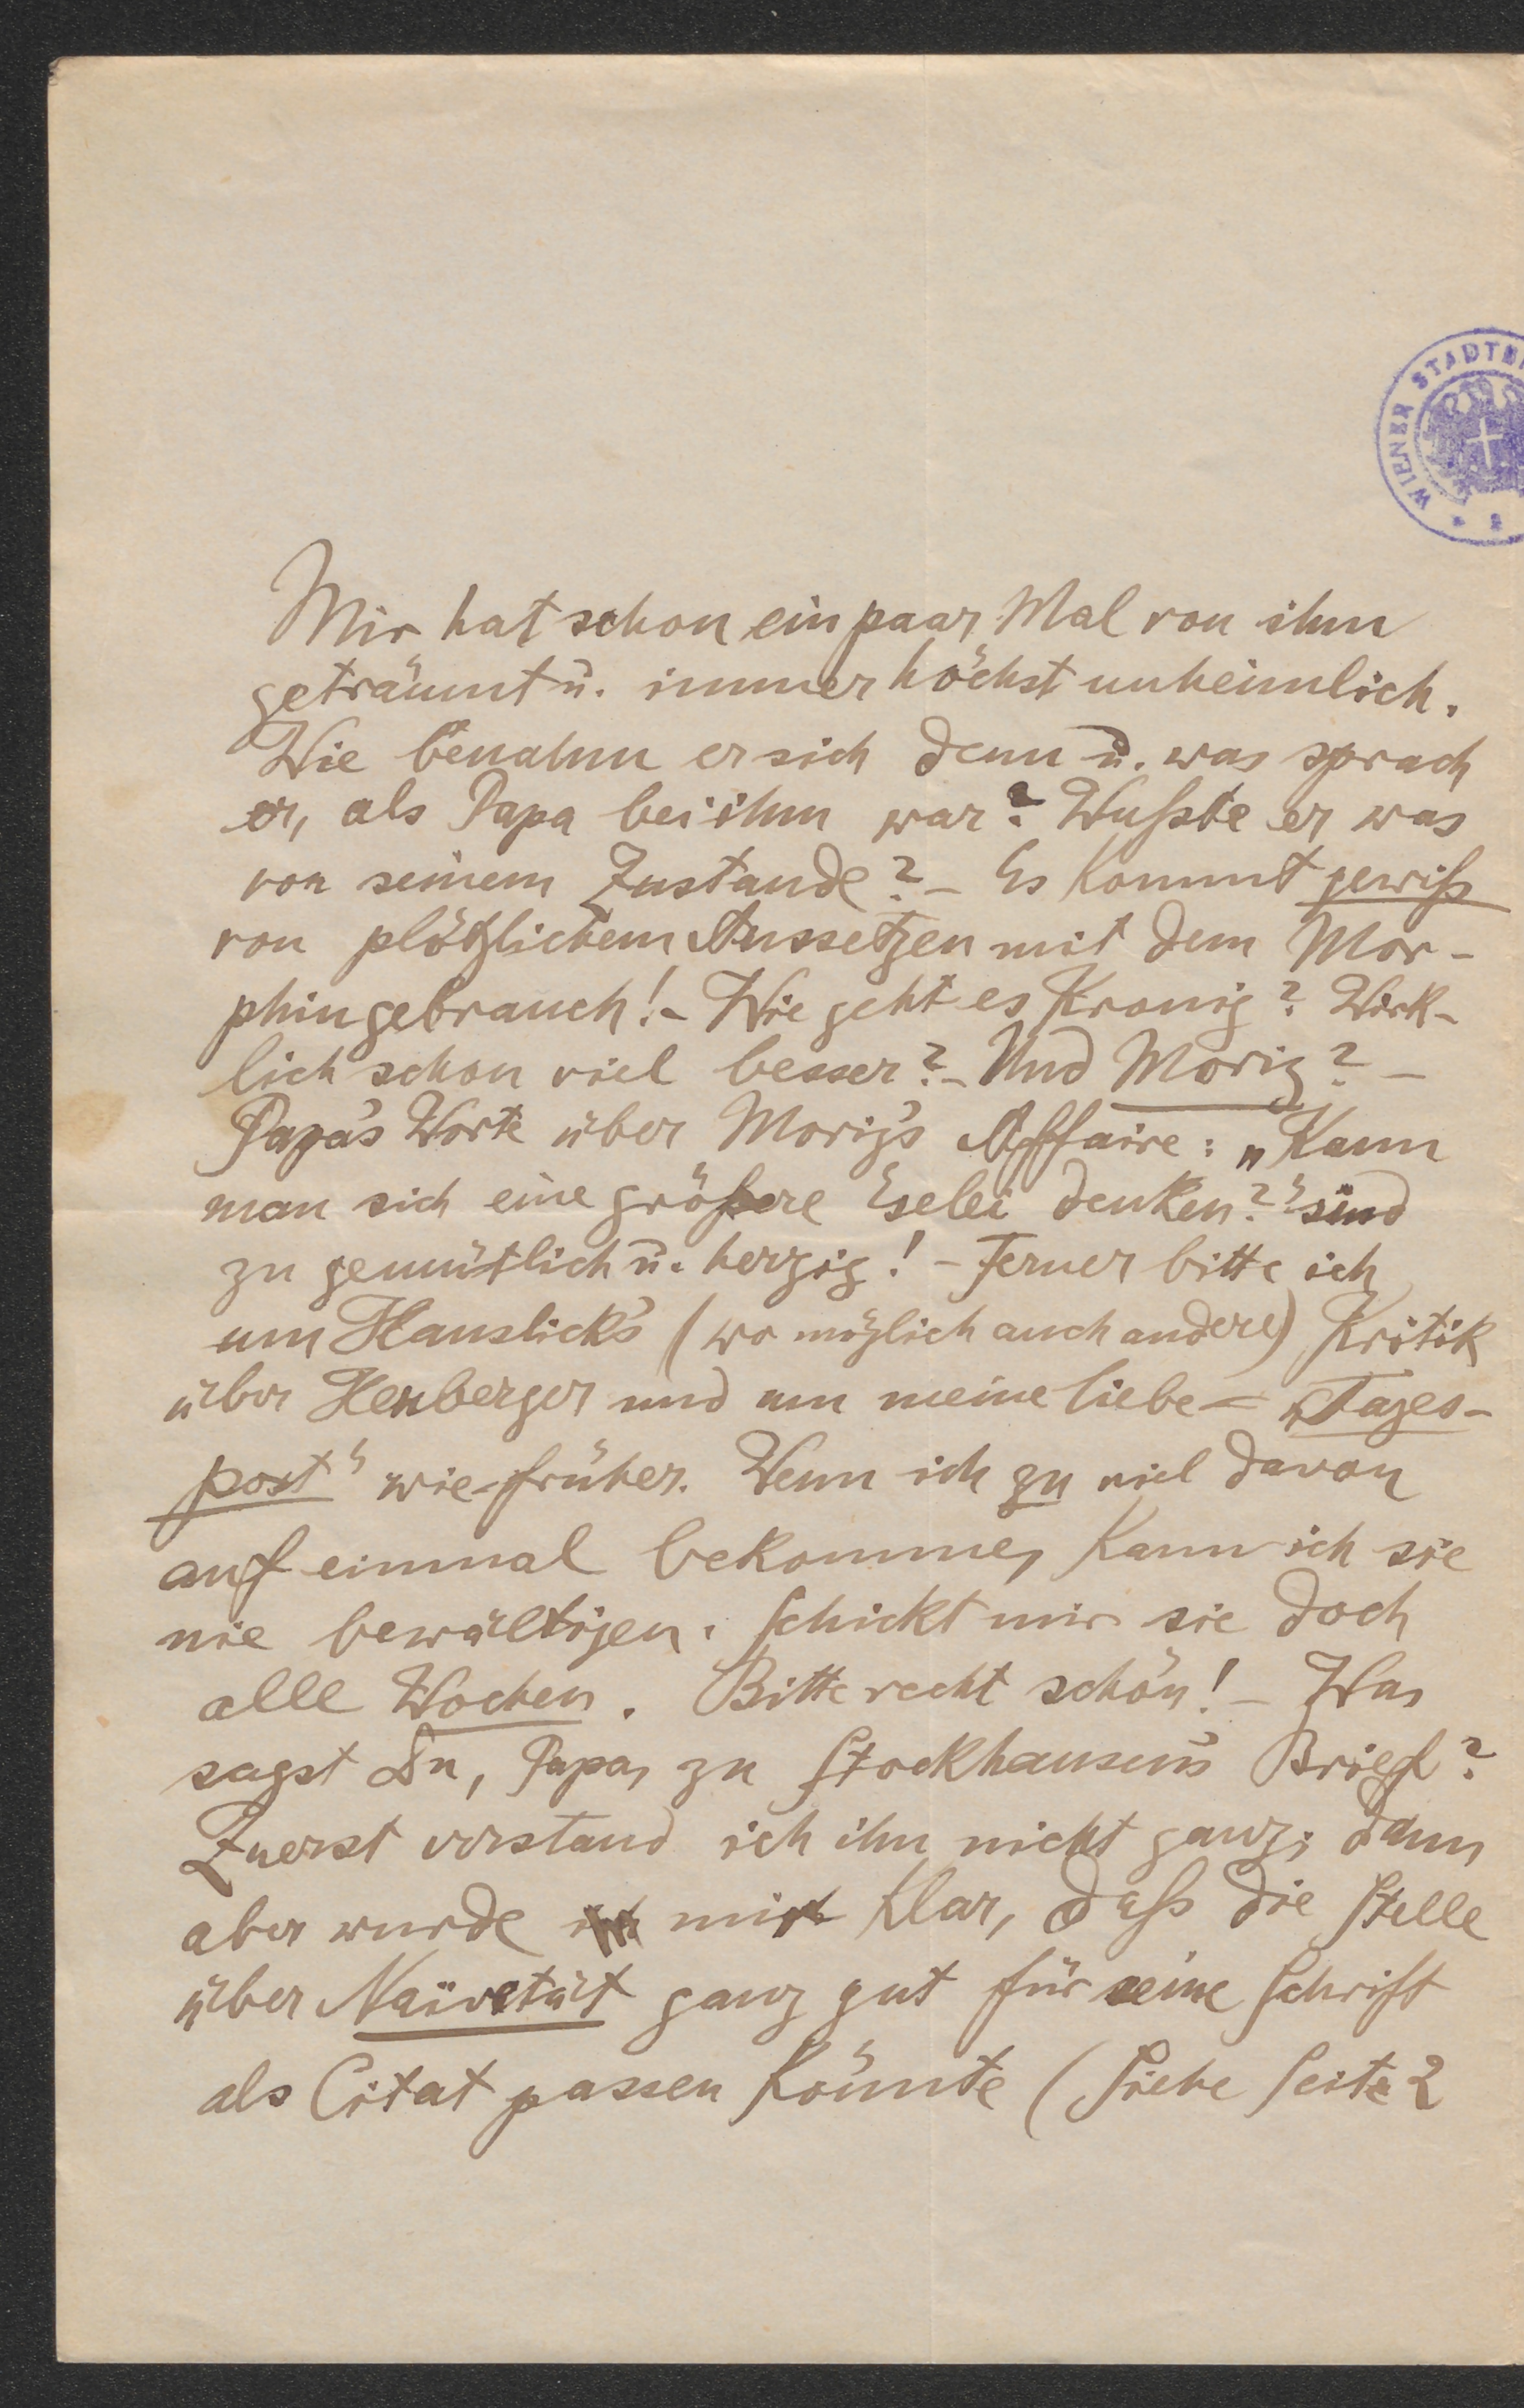 WIENER STADTB
Mir hat schon ein paar Mal von ihm
geträumt u. immer höchst unheimlich.
Wie benahm er sich denn u. was sprach
er, als Papa bei ihm war? Wußte er was
von seinem Zustande? – Es kommt gewiß
von plötzlichem Aussetzen mit dem Mor-
phingebrauch! – Wie geht es Kronig? Wirk-
lich schon viel besser? – Und Moriz? –
Papa's Worte über Moriz's Affaire: „Kann
man sich eine größere Eselei denken?“ sind
zu gemütlich u. herzig! – Ferner bitte ich
um Hanslick's (wo möglich auch andere) Kritik
über Heuberger und um meine liebe „Tages-
post“ wie früher. Wenn ich zu viel davon
auf einmal bekomme, kann ich sie
nie bewältigen. Schickt mir sie doch
alle Wochen. Bitte recht schön! – Was
sagst Du, Papa, zu Stockhausen's Brief?
Zuerst verstand ich ihn nicht ganz; dann
aber wurde mir klar, daß die Stelle
über Naïvetät ganz gut für seine Schrift
als Citat passen könnte (Siehe Seite 2